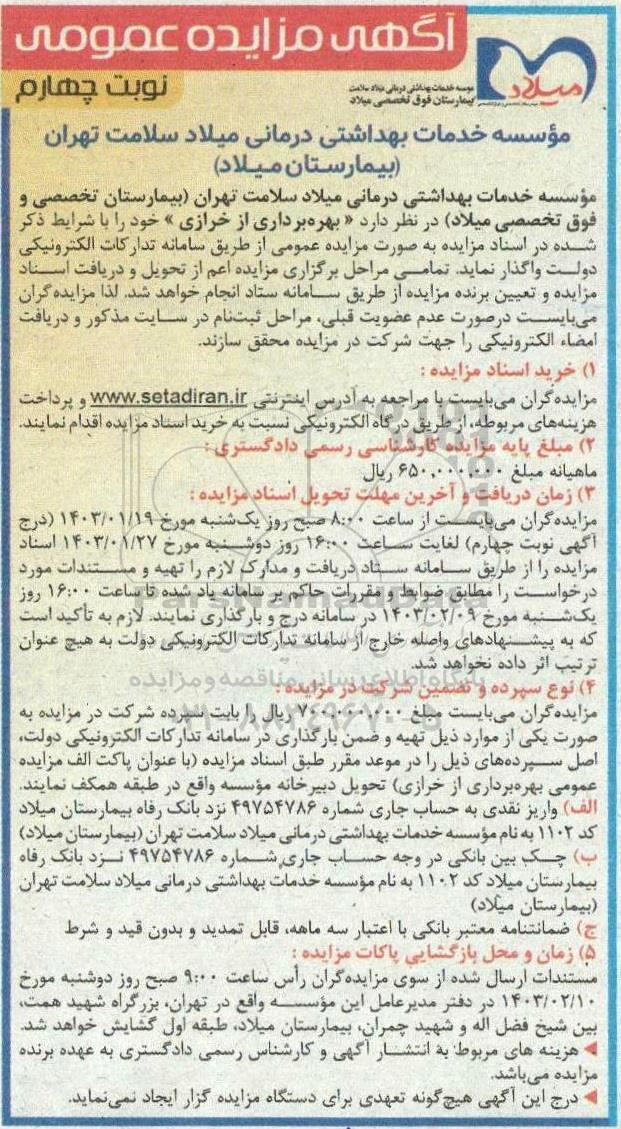 آگهی مزایده عمومی
نوبت چهارم
میلاد
موسسه خدمات بهداشتی درمانی میلاد سلامت
بیمارستان فوق تخصصی میلاد
مؤسسه خدمات بهداشتی درمانی میلاد سلامت تهران
(بیمارستان میلاد)
مؤسسه خدمات بهداشتی درمانی میلاد سلامت تهران (بیمارستان تخصصی و
فوق تخصصی میلاد) در نظر دارد « بهره‌برداری از خرازی » خود را با شرایط ذکر
شده در اسناد مزایده به صورت مزایده عمومی از طریق سامانه تدارکات الکترونیکی
دولت واگذار نماید. تمامی مراحل برگزاری مزایده اعم از تحویل و دریافت اسناد
مزایده و تعیین برنده مزایده از طریق سامانه ستاد انجام خواهد شد. لذا مزایده‌گران
می‌بایست درصورت عدم عضویت قبلی، مراحل ثبت‌نام در سایت مذکور و دریافت
امضاء الکترونیکی را جهت شرکت در مزایده محقق سازند.
۱) خرید اسناد مزایده :
مزایده‌گران می‌بایست با مراجعه به آدرس اینترنتی www.setadiran.ir و پرداخت
هزینه‌های مربوطه، از طریق درگاه الکترونیکی نسبت به خرید اسناد مزایده اقدام نمایند.
۲) مبلغ پایه مزایده کارشناسی رسمی دادگستری :
ماهیانه مبلغ ۶۵۰,۰۰۰,۰۰۰ ریال
۳) زمان دریافت و آخرین مهلت تحویل اسناد مزایده :
مزایده‌گران می‌بایست از ساعت ۸:۰۰ صبح روز یک‌شنبه مورخ ۱۴۰۳/۰۱/۱۹ (درج
آگهی نوبت چهارم) لغایت ساعت ۱۶:۰۰ روز دوشنبه مورخ ۱۴۰۳/۰۱/۲۷ اسناد
مزایده را از طریق سامانه ستاد دریافت و مدارک لازم را تهیه و مستندات مورد
درخواست را مطابق ضوابط و مقررات حاکم بر سامانه یاد شده تا ساعت ۱۶:۰۰ روز
یک‌شنبه مورخ ۱۴۰۳/۰۲/۰۹ در سامانه درج و بارگذاری نمایند. لازم به تأکید است
که به پیشنهادهای واصله خارج از سامانه تدارکات الکترونیکی دولت به هیچ عنوان
ترتیب اثر داده نخواهد شد.
پایگاه اطلاع رسانی مناقصه و مزایده
۴) نوع سپرده و تضمین شرکت در مزایده :
مزایده‌گران می‌بایست مبلغ ریال را بابت سپرده شرکت در مزایده به
صورت یکی از موارد ذیل تهیه و ضمن بارگذاری در سامانه تدارکات الکترونیکی دولت،
اصل سپرده‌های ذیل را در موعد مقرر طبق اسناد مزایده (با عنوان پاکت الف مزایده
عمومی بهره‌برداری از خرازی) تحویل دبیرخانه مؤسسه واقع در طبقه همکف نمایند.
الف) واریز نقدی به حساب جاری شماره ۴۹۷۵۴۷۸۶ نزد بانک رفاه بیمارستان میلاد
کد ۱۱۰۲ به نام مؤسسه خدمات بهداشتی درمانی میلاد سلامت تهران (بیمارستان میلاد)
ب) چک بین بانکی در وجه حساب جاری شماره ۴۹۷۵۴۷۸۶ نزد بانک رفاه
بیمارستان میلاد کد ۱۱۰۲ به نام مؤسسه خدمات بهداشتی درمانی میلاد سلامت تهران
(بیمارستان میلاد)
ج) ضمانتنامه معتبر بانکی با اعتبار سه ماهه، قابل تمدید و بدون قید و شرط
۵) زمان و محل بازگشایی پاکات مزایده :
مستندات ارسال شده از سوی مزایده‌گران رأس ساعت ۹:۰۰ صبح روز دوشنبه مورخ
۱۴۰۳/۰۲/۱۰ در دفتر مدیرعامل این مؤسسه واقع در تهران، بزرگراه شهید همت،
بین شیخ فضل اله و شهید چمران، بیمارستان میلاد، طبقه اول گشایش خواهد شد.
◄ هزینه های مربوط به انتشار آگهی و کارشناس رسمی دادگستری به عهده برنده
مزایده می‌باشد.
◄ درج این آگهی هیچ‌گونه تعهدی برای دستگاه مزایده گزار ایجاد نمی‌نماید.